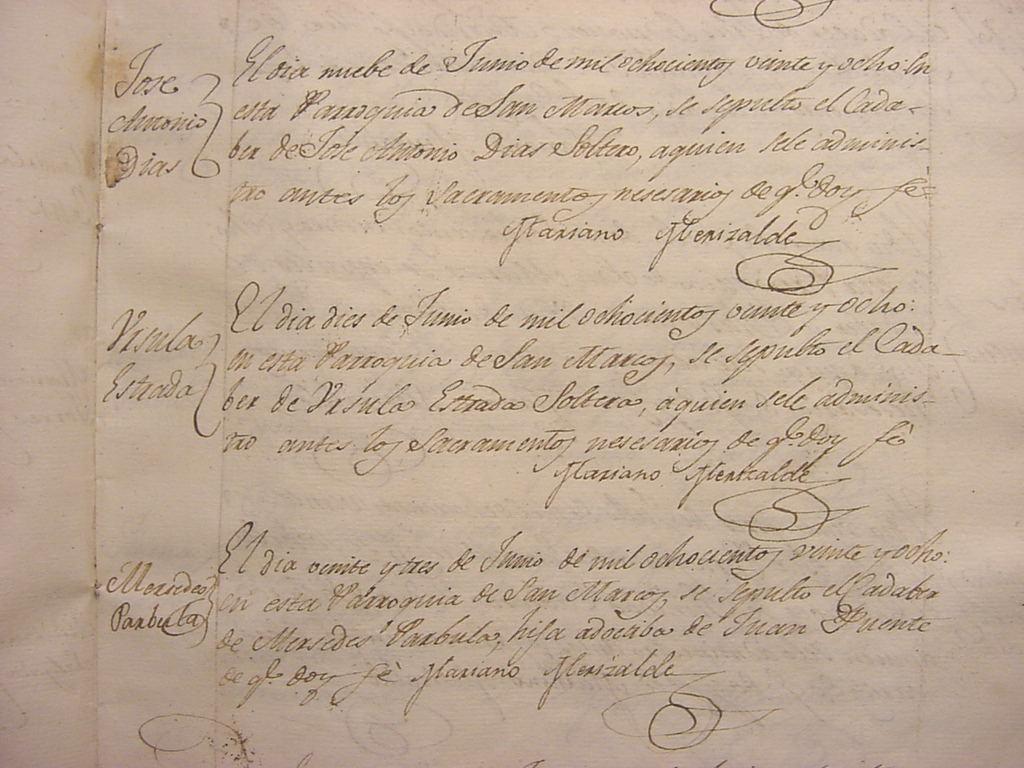 Jose
Antonio
Dias
El dia nuebe de Junio de mil ochocientos veinte y ocho. En
esta Parroquia de San Marcos, se sepulto el Cada-
ber de Jose Antonio Dias Soltero, aquien sele adminis-
tro antes los Sacramentos nesesarios de qe. doy fe
Mariano Merizalde
Ursula
Estrada
El dia dies de Junio de mil ochocientos veinte y ocho:
en esta Parroquia de San Marcos, se sepulto el Cada-
ber de Ursula Estrada Soltera, àquien sele adminis-
tro antes los Sacramentos nesesarios de qe. doy fè
Mariano Merizalde
Mersedes
Parbula
El dia veinte y tres de Junio de mil ochocientos veinte y ocho:
en esta Parroquia de San Marcos, se sepulto el Cadaber
de Mersedes Parbula, hija adoctiba de Juan Puente
de qe. doy fè Mariano Merizalde